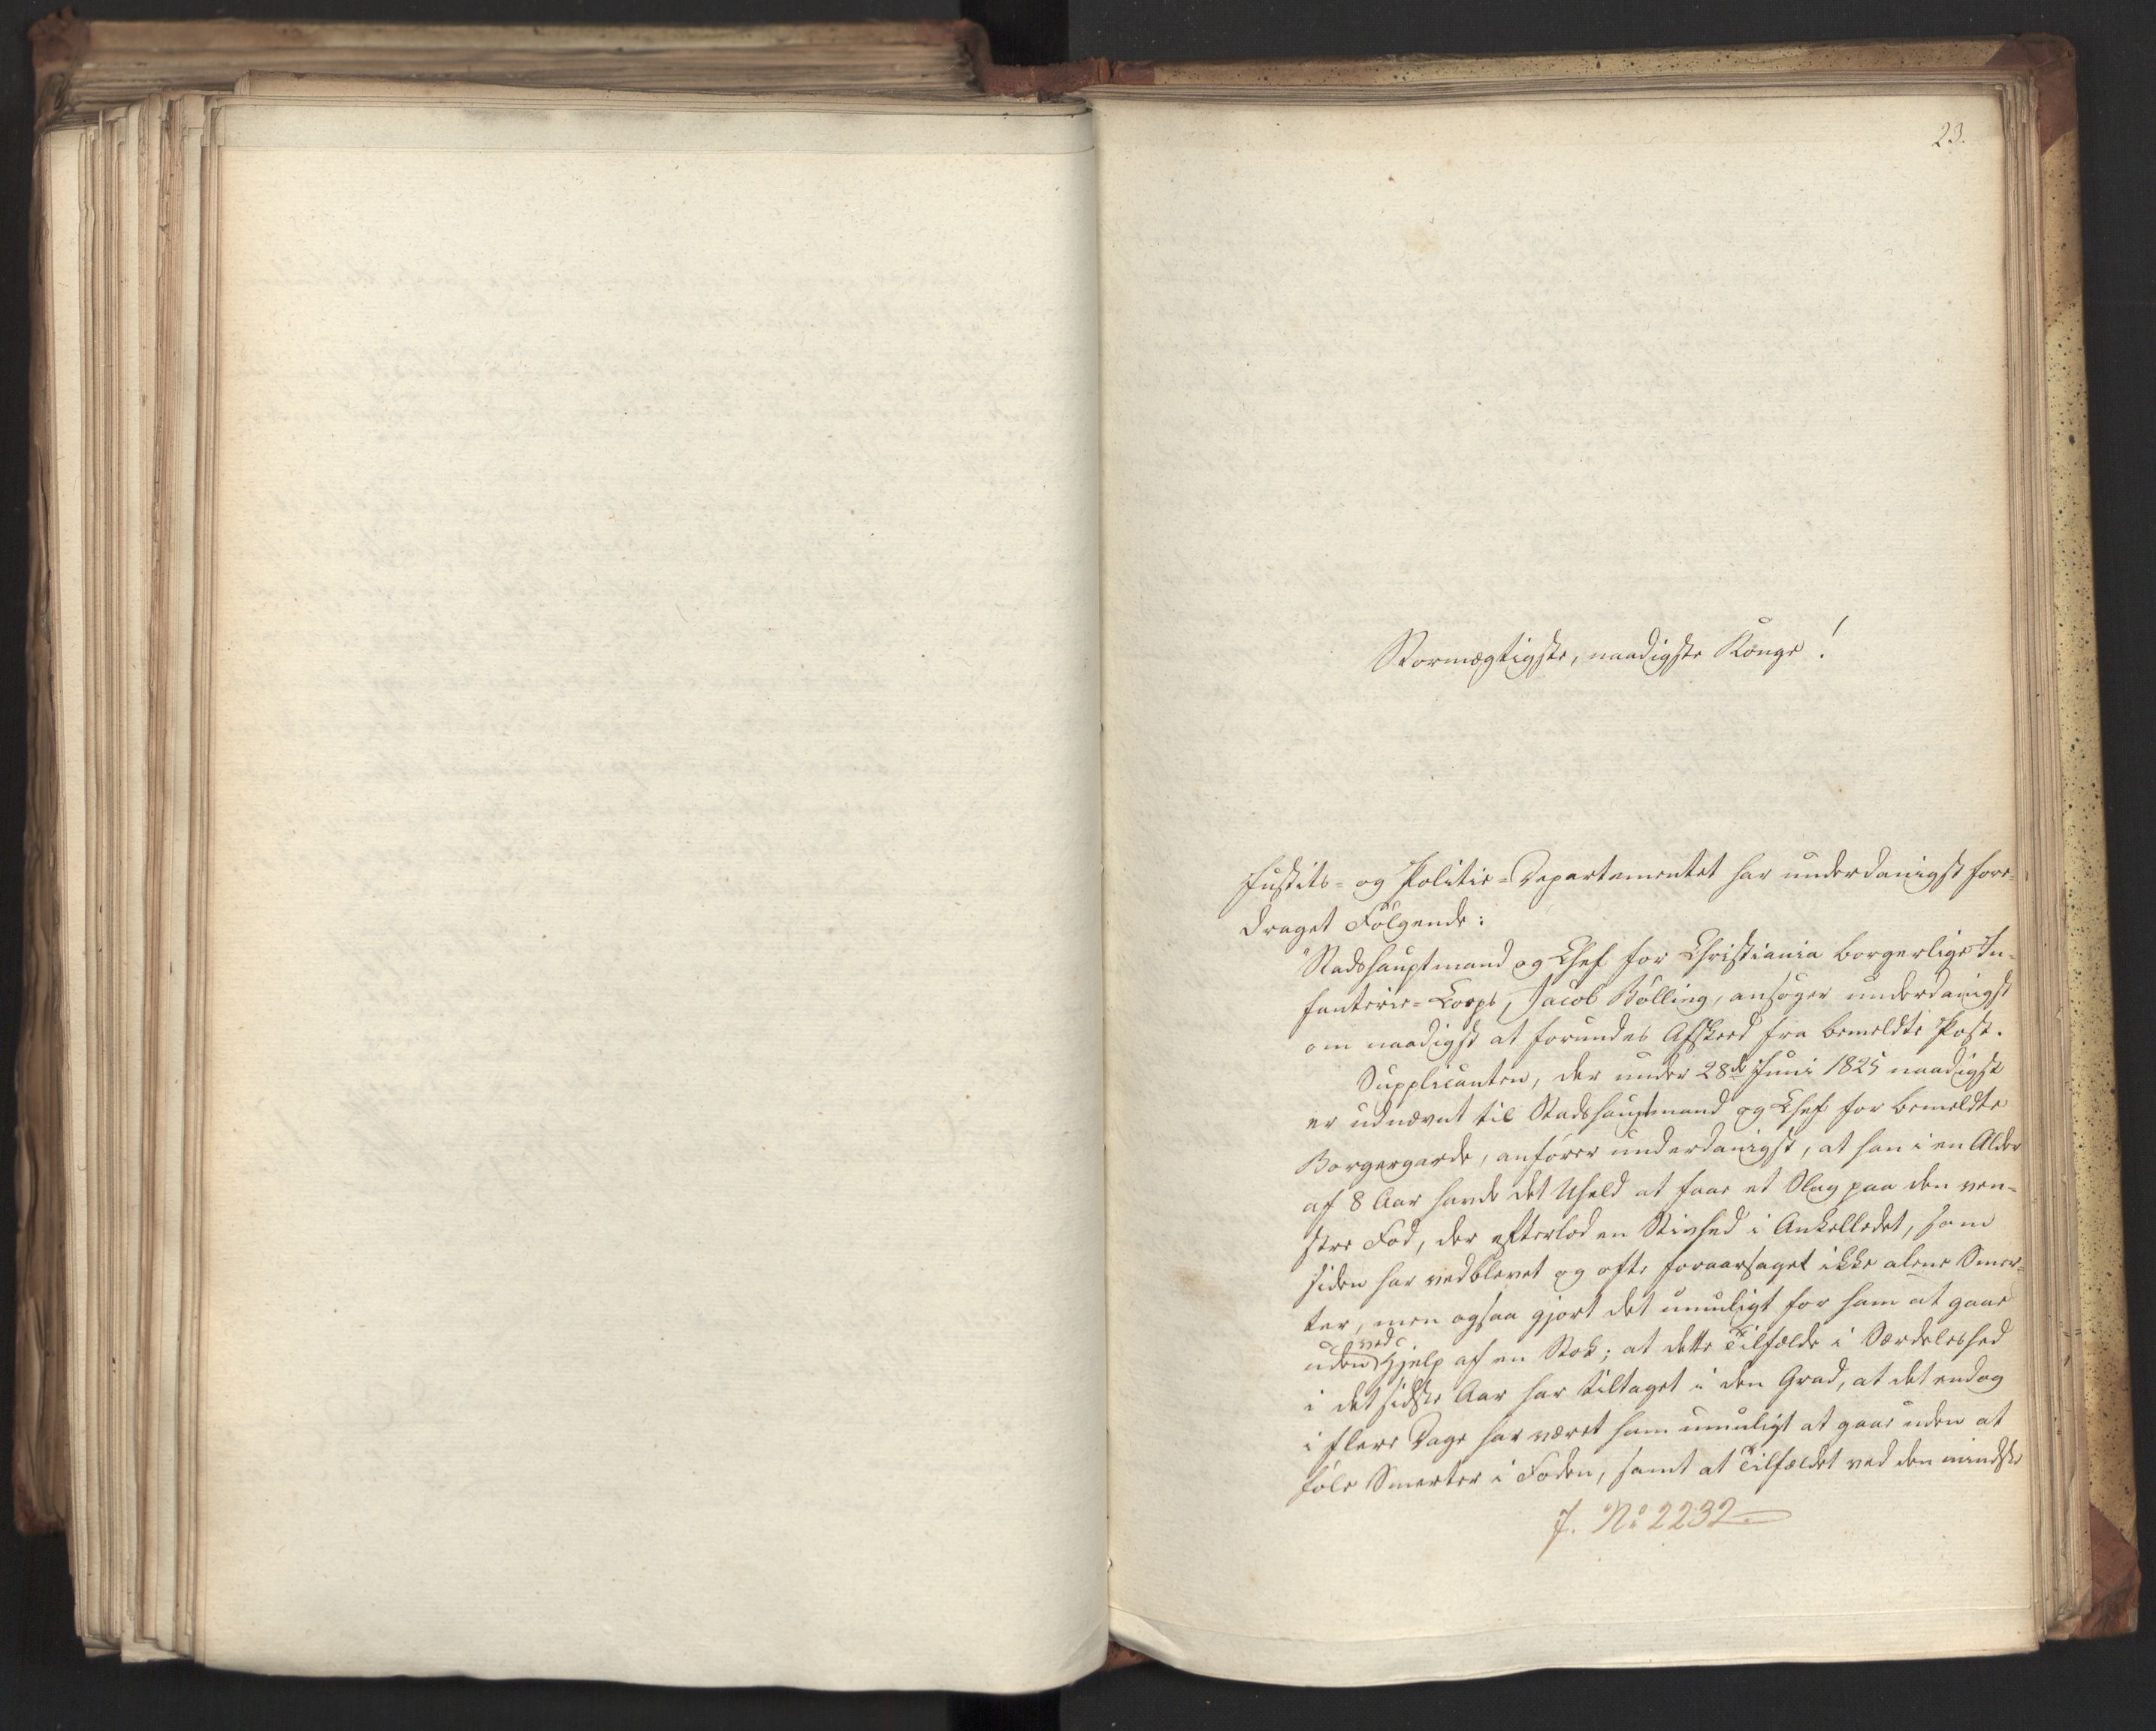 23.
Stormægtigste, naadigste Konge!
Justits- og Politie-Departementet har underdanigst fore-
draget Følgende:
"Stadshauptmand og Chef for Christiania borgerlige In-
fanterie-Corps, Jacob Bölling, ansøger underdanigst
om naadigst at forundes Afskeed fra bemeldte Post.
Supplicanten, der under 28de Juni 1825 naadigst
er udnævnt til Stadshauptmand og Chef for bemeldte
Borgergarde, anfører underdanigst, at han i en Alder
af 8 Aar havde det Uheld at faae et Slag paa den ven-
stre Fod, der efterlod en Stivhed i Ankelledet, som
siden har vedblevet og ofte foraarsaget ikke alene Smer-
ter, men ogsaa gjort det umuligt for ham at gaae
uden ved Hjelp af en Stok; at dette Tilfælde i Særdeleshed
i det sidste Aar har tiltaget i den Grad, at det endog
i flere Dage har været ham umuligt at gaae uden at
føle Smerter i Foden, samt at Tilfældet ved den mindste
J. No 2232.